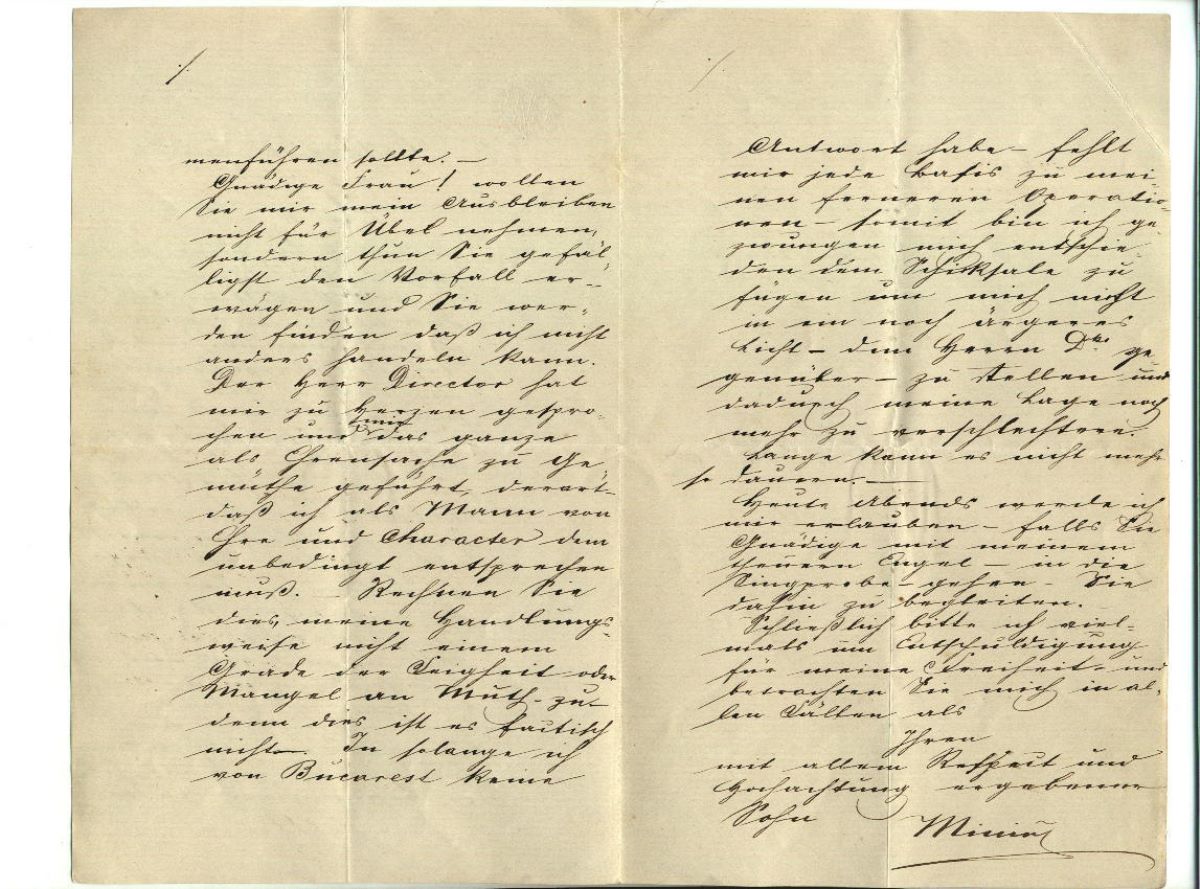 menführen sollte. —
Gnädige Frau! wollen
Sie mir mein Ausbleiben
nicht für Übel nehmen,
sondern thun Sie gefäl-
ligst den Vorfall er-
wägen und Sie wer-
den finden daß ich nicht
anders handeln kann.
Der Herr Director hat
mir zu Herzen gespro-
chen und mir das ganze
als Ehrensache zu Ge-
müthe geführt, derart-
daß ich als Mann von
Ehre und Character dem
unbedingt entsprechen
muß. — Rechnen Sie
dies, meine Handlungs-
weise nicht einem
Grade der Feigheit oder
Mangel an Muth- zu-
denn dies ist es factisch
nicht—. In solange ich
von Bucarest keine
Antwort habe — fehlt
mir jede Basis zu mei-
nen ferneren Operatio-
nen — somit bin ich ge-
zwungen mich entschie-
den dem Schicksale zu
fügen um mich nicht
in ein noch ärgeres
Licht — dem Herrn ge-
genüber — zu stellen und
dadurch meine Lage noch
mehr zu verschlechtern.
Lange kann es nicht mehr
so dauern. —
Heute Abends werde ich
mir erlauben — falls Sie
Gnädige mit meinem
theuern Engel — in die
Singprobe gehen — Sie
dahin zu begleiten.
Schließlich bitte ich viel-
mals um Entschuldigung
für meine Freiheit, und
betrachten Sie mich in al-
len Fällen als
Ihren
mit allem Respect und
Hochachtung ergebenen
Sohn